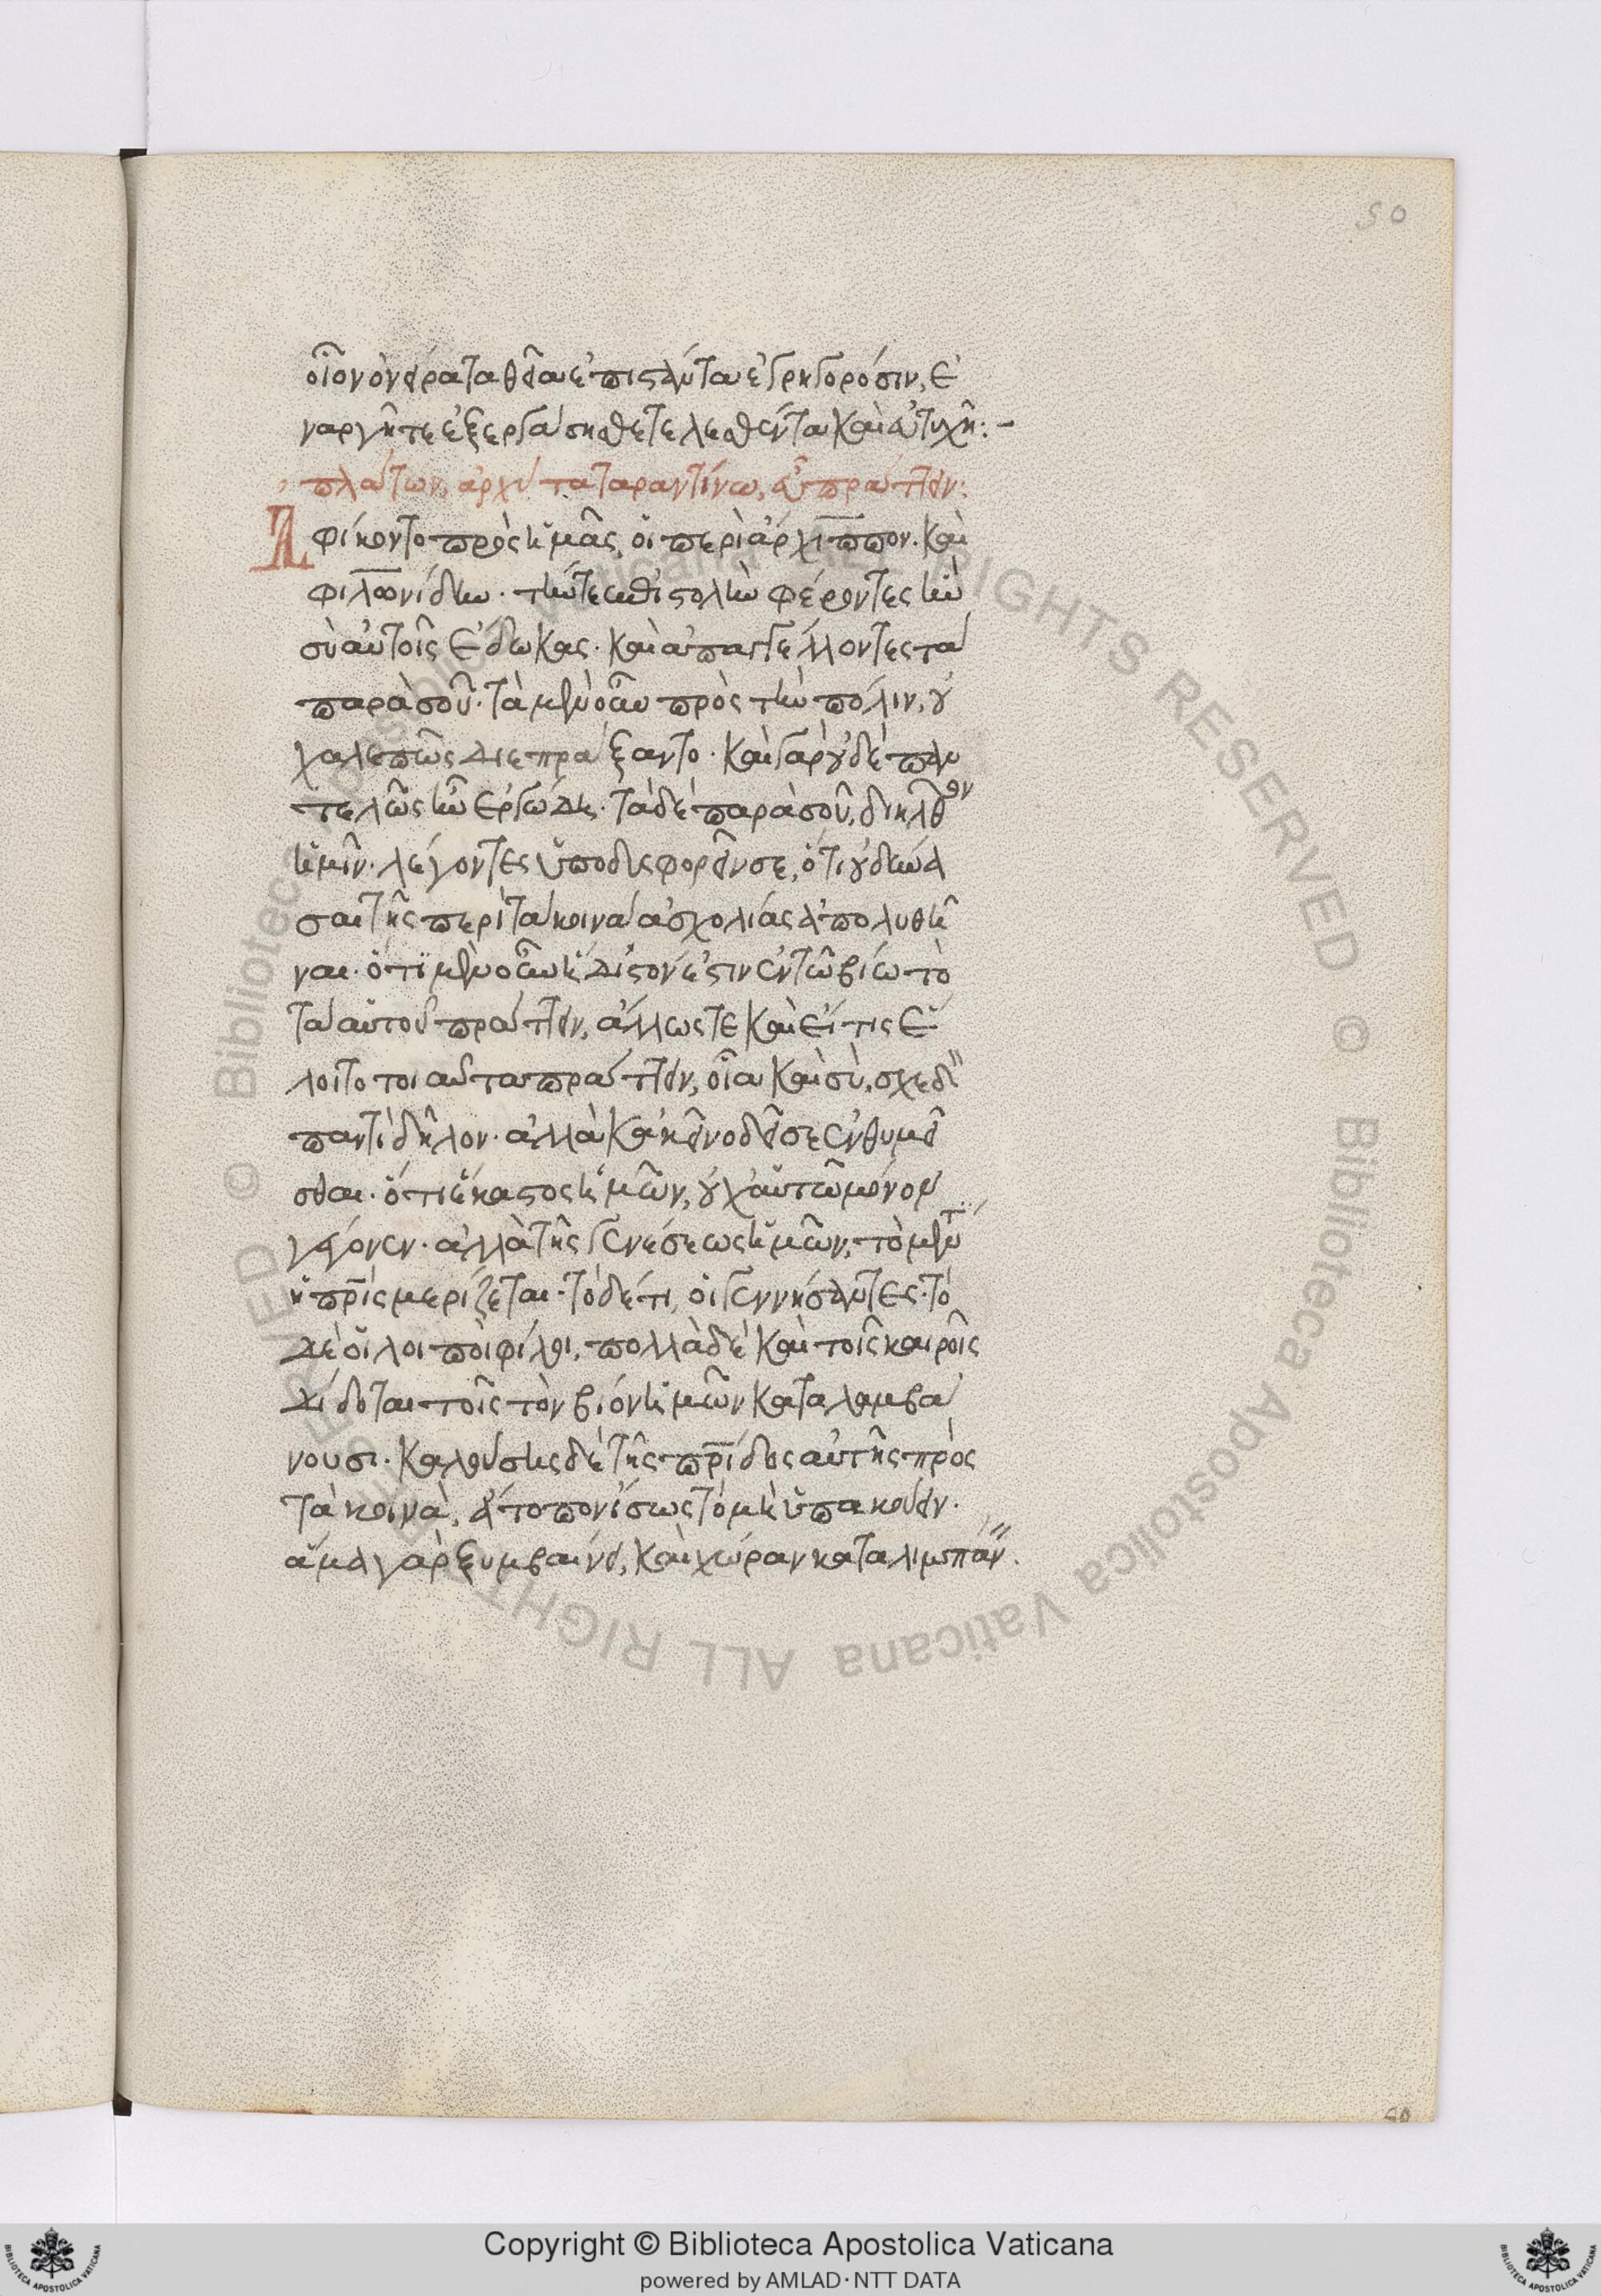 50
οἷον ὀνείρατα θεῖα ἐπιστάντα ἐγρηγορόσιν, ἐ
ναργῆ τε ἐξεργάσησθε τελεσθέντα καὶ εὐτυχῆ:-
πλάτων ἀρχύτα ταραντίνω, εὖ πράττειν:
Ἀφίκοντο πρὸς ἡμᾶς, οἱ περὶ ἀρχιππον. καὶ
φιλωνίδην. τήν τε ἐπιστολὴν φέροντες ἣν
σὺ αὐτοῖς ἔδωκας. καὶ ἀπαγγέλλοντες τὰ
παρὰ σοῦ. τὰ μὲν οὖν πρὸς τὴν πόλιν, οὐ
χαλεπῶς διεπράξαντο. καὶ γὰρ οὐδὲ παν
τελῶς ἦν ἐργώδη. τὰ δὲ παρὰ σοῦ, διῆλθον
ἡμῖν. λέγοντες ὑποδυσφορεῖν σε, ὅτι οὐ δύνα
σαι τῆς περὶ τὰ κοινὰ ἀσχολίας ἀπολυθῆ
ναι. ὅτι μὲν οὖν ἥδιστόν ἐστιν ἐν τῶ βίω τὸ
τὰ αὑτοῦ πράττειν, ἄλλως τε καὶ εἴ τις ἕ
λοιτο τοιαῦτα πράττειν, οἷα καὶ σύ, σχεδὸν
παντὶ δῆλον. ἀλλὰ κἀκεῖνο δεῖ σε ἐνθυμεῖ
σθαι. ὅτι ἕκαστος ἡμῶν, οὐχ αὑτῶ μόνον
γέγονεν. ἀλλὰ τῆς γενέσεως ἡμῶν, τὸ μέν τι
ἡ πρὶς μερίζεται. τὸ δέ τι, οἱ γεννήσαντες. τὸ
δὲ οἱ λοιποὶ φίλοι, πολλὰ δὲ καὶ τοῖς καιροῖς
δίδοται τοῖς τὸν βίον ἡμῶν καταλαμβά
νουσι. καλούσης δὲ τῆς πρίδος αὐτῆς πρὸς
τὰ κοινὰ, ἄτοπον ἴσως τὸ μὴ ὑπακούειν.
ἅμα γὰρ ξυμβαίνει, καὶ χώραν καταλιμπάνειν.
50
Copyright © Biblioteca Apostolica Vaticana
powered by AMLAD·NTT DATA